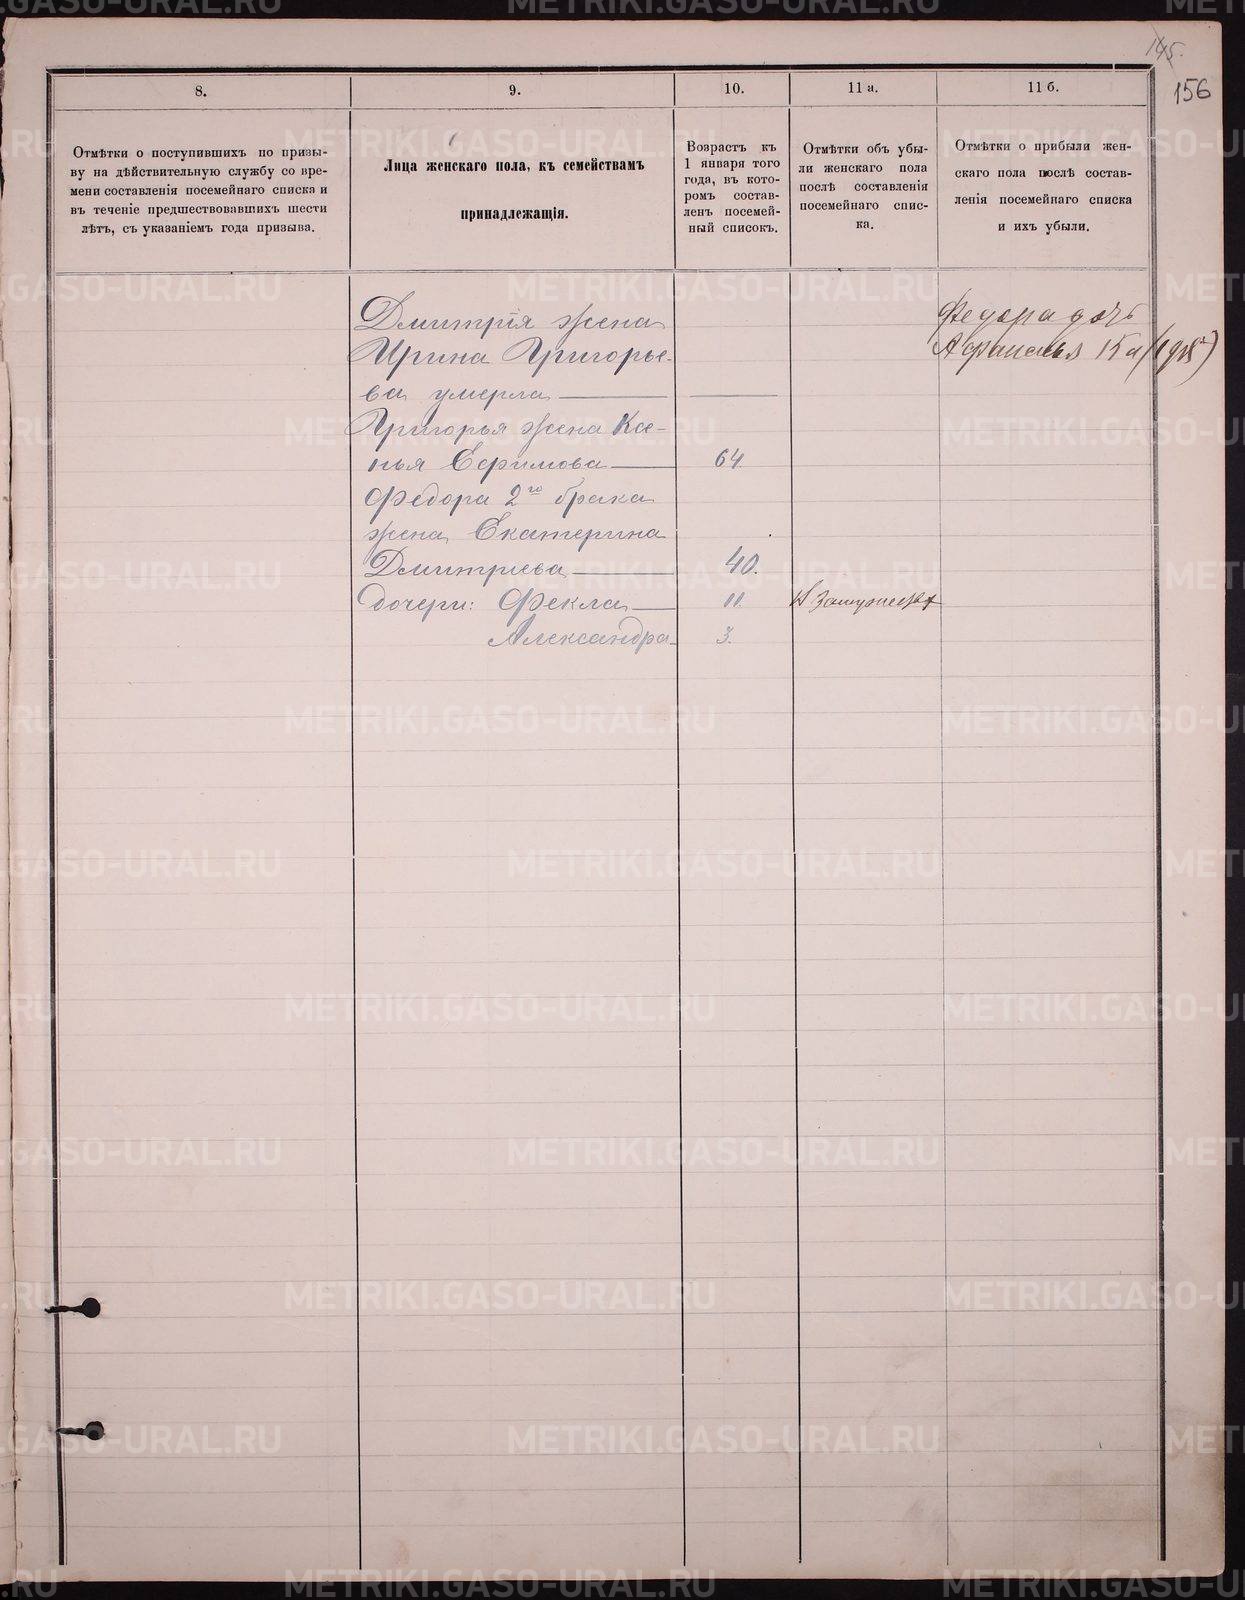 145.
156
8.
9.
10.
11 а.
11 б.
Отмѣтки о поступившихъ по призы-
ву на дѣйствительную службу со вре-
мени составленія посемейнаго списка и
въ теченіе предшествовавшихъ шести
лѣтъ, съ указаніемъ года призыва.
Лица женскаго пола, къ семействамъ
принадлежащія.
Возрастъ къ
1 января того
года, въ кото-
ромъ состав-
ленъ посемей-
ный списокъ.
Отмѣтки объ убы-
ли женскаго пола
послѣ составленія
посемейнаго спис-
ка.
Отмѣтки о прибыли жен-
скаго пола послѣ состав-
ленія посемейнаго списка
и ихъ убыли.
Дмитрія жена
Ирина Григорье-
ва умерла
Григорья жена Ксе-
нья Ефимова 64
Федора 2го брака
жена Екатерина
Дмитриева 40.
дочери: Феклa 11. Замужеств
Александра 3.
Федора дочь
METRIKI.GASO-URAL.RU